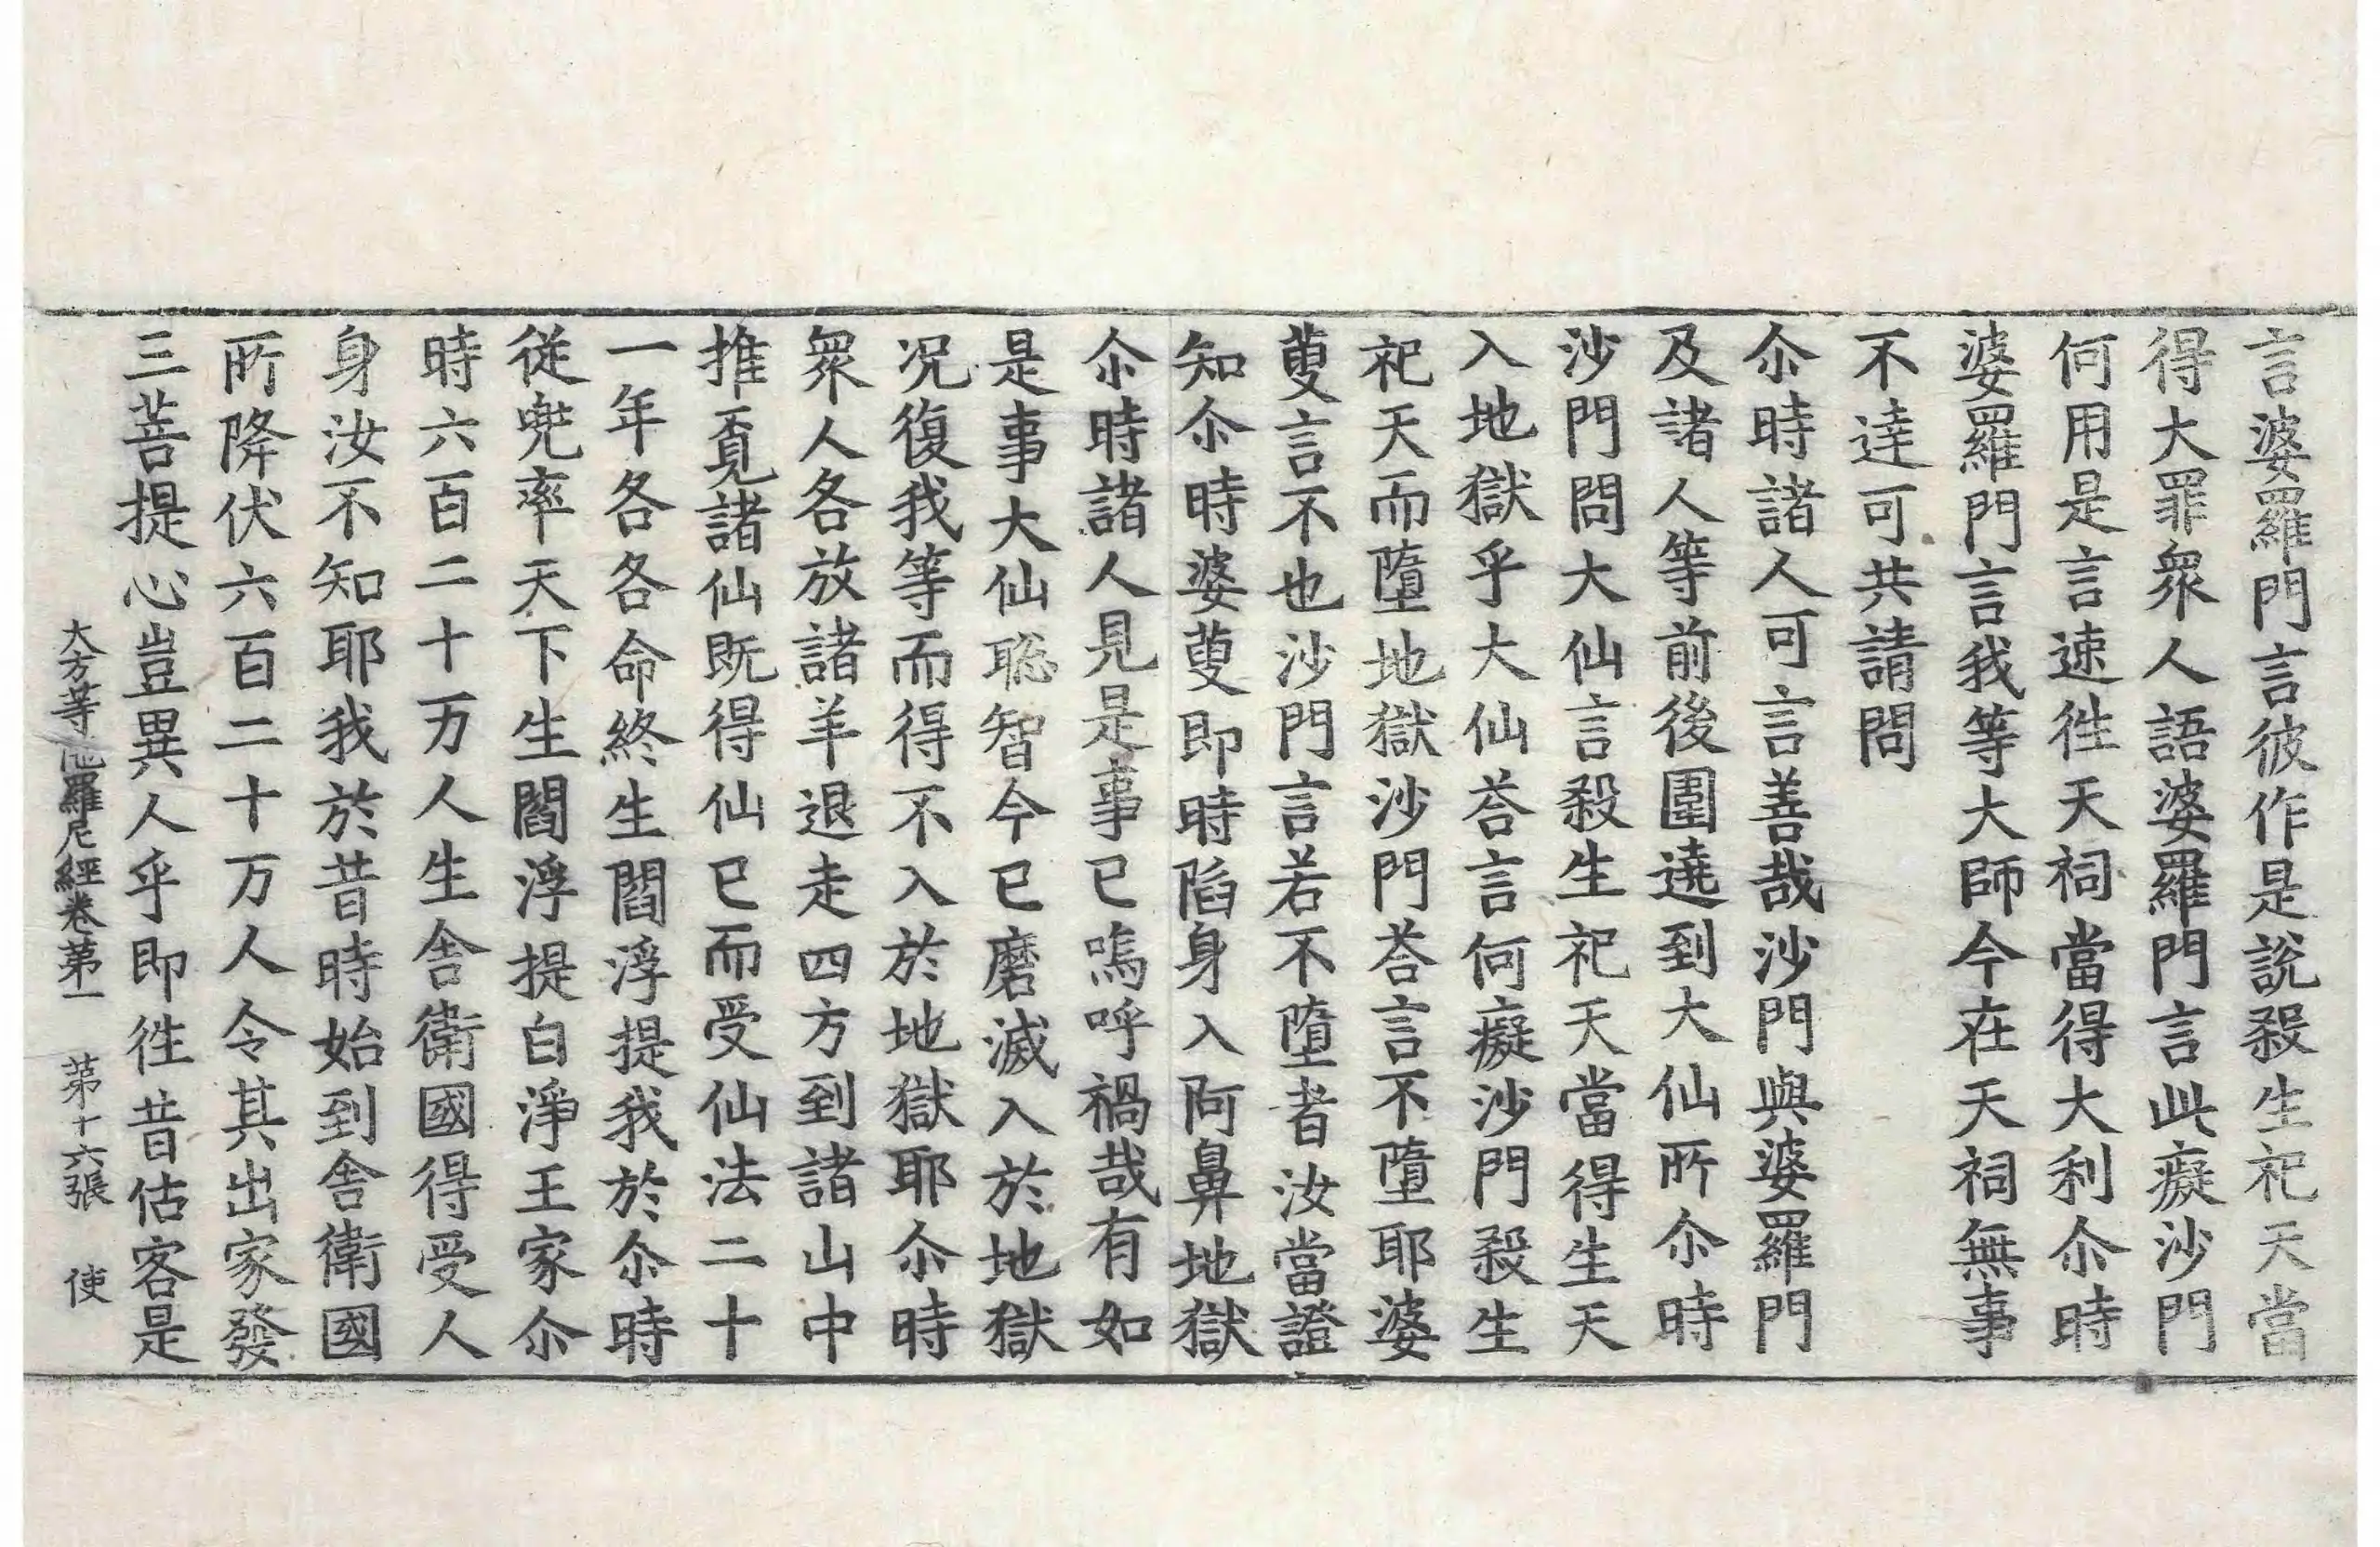 言婆羅門言彼作是說殺生祀天當
得大罪衆人語婆羅門言此癡沙門
何用是言速徃天祠當得大利尒時
婆羅門言我等大師今在天祠無事
不達可共請問
尒時諸人可言善哉沙門與婆羅門
及諸人等前後圍遶到大仙所尒時
沙門問大仙言殺生祀天當得生天
入地獄乎大仙荅言何癡沙門殺生
祀天而墮地獄沙門荅言不墮耶婆
藪言不也沙門言若不墮者汝當證
知尒時婆藪即時陷身入阿鼻地獄
尒時諸人見是事已嗚呼禍哉有如
是事大仙聡智今已磨滅入於地獄
况復我等而得不入於地獄耶尒時
衆人各放諸羊退走四方到諸山中
推覓諸仙既得仙已而受仙法二十
一年各各命終生閻浮提我於尒時
從兜率天下生閻浮提白淨王家尒
時六百二十万人生舍衛國得受人
身汝不知耶我於昔時始到舍衛國
所降伏六百二十万人令其出家發
三菩提心豈異人乎即徃昔估客是
大方等陁羅尼經卷第一　第十六張　使